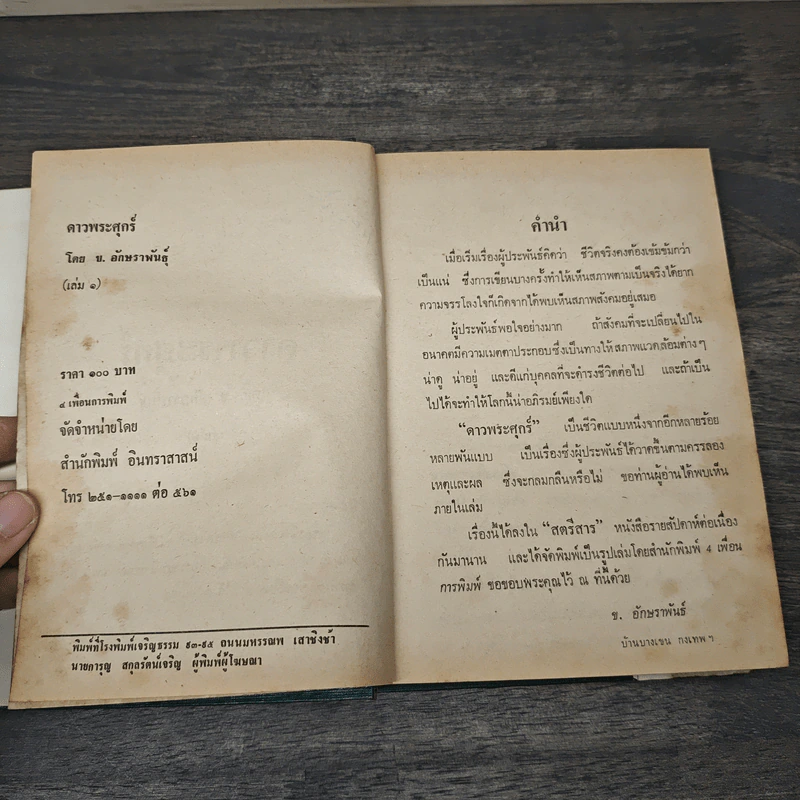 ดาวพระศุกร์
โดย ข. อักษราพันธุ์
(เล่ม ๑)
ราคา ๑๐๐ บาท
๔ เพื่อนการพิมพ์
จัดจำหน่ายโดย
สำนักพิมพ์ อินทราสาสน์
โทร ๒๕๑-๑๑๑๑ ต่อ ๕๖๑
พิมพ์ที่โรงพิมพ์เจริญธรรม ๙๓-๙๕ ถนนมหรรณพ เสาชิงช้า
นายการุญ สกุลรัตน์เจริญ ผู้พิมพ์ผู้โฆษณา
คำนำ
เมื่อเริ่มเรื่องผู้ประพันธ์คิดว่า ชีวิตจริงคงต้องเข้มข้นกว่า
เป็นแน่ ซึ่งการเขียนบางครั้งทำให้เห็นสภาพตามเป็นจริงได้ยาก
ความจรรโลงใจก็เกิดจากได้พบเห็นสภาพสังคมอยู่เสมอ
ผู้ประพันธ์พอใจอย่างมาก ถ้าสังคมที่จะเปลี่ยนไปใน
อนาคตมีความเมตตาประกอบซึ่งเป็นทางให้สภาพแวดล้อมต่างๆ
น่าดู น่าอยู่ และดีแก่บุคคลที่จะดำรงชีวิตต่อไป และถ้าเป็น
ไปได้จะทำให้โลกนี้น่าอภิรมย์เพียงใด
“ดาวพระศุกร์” เป็นชีวิตแบบหนึ่งจากอีกหลายร้อย
หลายพันแบบ เป็นเรื่องซึ่งผู้ประพันธ์ได้วาดขึ้นตามครรลอง
เหตุและผล ซึ่งจะกลมกลืนหรือไม่ ขอท่านผู้อ่านได้พบเห็น
ภายในเล่ม
เรื่องนี้ได้ลงใน “สตรีสาร” หนังสือรายสัปดาห์ต่อเนื่อง
กันมานาน และได้จัดพิมพ์เป็นรูปเล่มโดยสำนักพิมพ์ 4 เพื่อน
การพิมพ์ ขอขอบพระคุณไว้ ณ ที่นี้ด้วย
ข. อักษราพันธ์
บ้านบางเขน กงเทพฯ